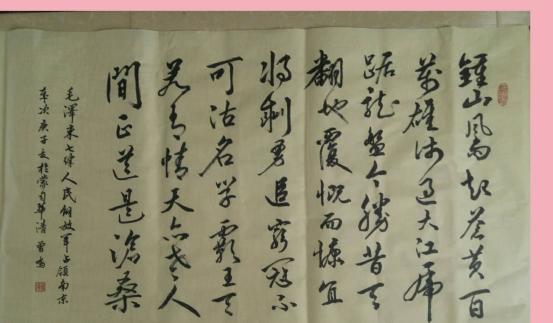 鍾山風雨起蒼黃百
萬雄師過大江虎
踞龍盤今勝昔天
翻地覆慨而慷宜
將剩勇追窮寇不
可沽名學霸王天
若有情天亦老人
間正道是滄桑
毛澤東七律人民解放軍占領南京
庚子夏於蒙自